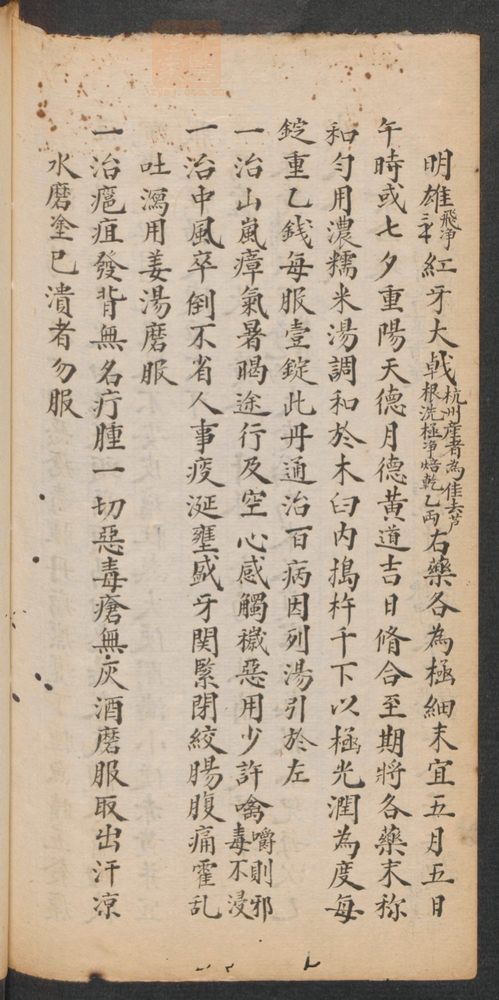 明雄飛淨三𠂤紅牙大戟杭州產者為佳去芦根洗極淨焙乾乙両右藥各為極細末宜五月五日
午時或七夕重陽天德月德黃道吉日脩合至期將各藥末称
和匀用濃糯米湯調和於木臼内搗杵千下以極光潤為度每
錠重乙錢每服壹錠此丹通治百病因列湯引於左
一治山嵐瘴氣暑暍途行及空心感觸穢惡用少許噙嚼則邪毒不浸
一治中風卒倒不省人事疫涎壅盛牙関緊閉絞腸腹痛霍乱
吐瀉用姜湯磨服
一治癰疽發背無名疔腫一切惡毒瘡無灰酒磨服取出汗凉
水磨塗已潰者勿服